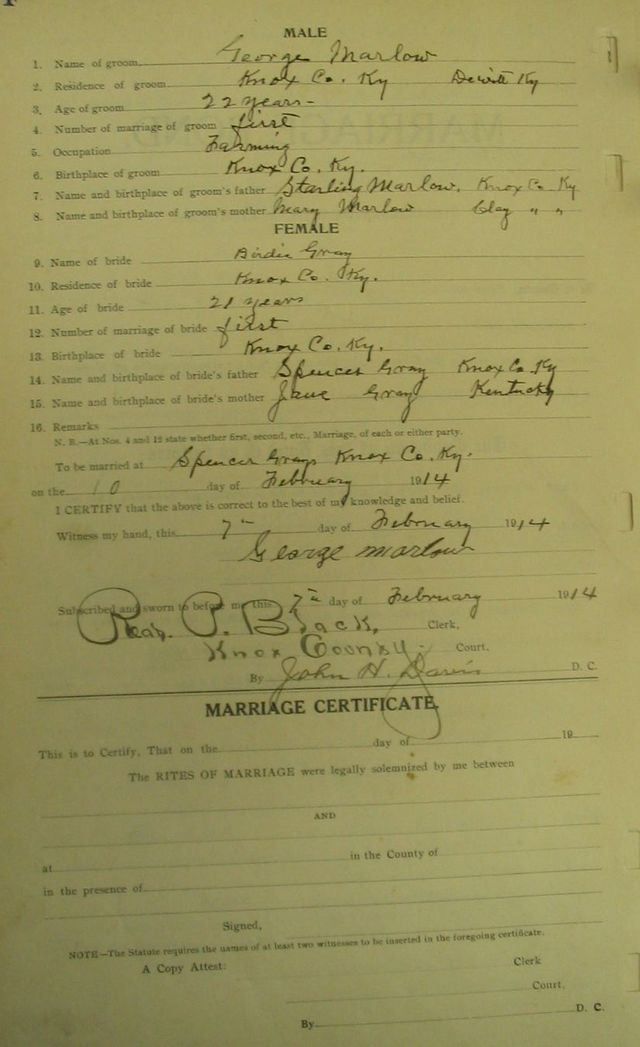 MALE
1. Name of groom George Marlow
2. Residence of groom Knox Co. Ky Dewitt Ky
3. Age of groom 22 years-
4. Number of marriage of groom first
5. Occupation Farming
6. Birthplace of groom Knox Co. Ky.
7. Name and birthplace of groom's father Starling Marlow. Knox Co Ky
8. Name and birthplace of groom's mother Mary Marlow Clay " "
FEMALE
9. Name of bride Birdie Gray
10. Residence of bride Knox Co. Ky.
11. Age of bride 21 years
12. Number of marriage of bride first
13. Birthplace of bride Knox Co. Ky.
14. Name and birthplace of bride's father Spencer Gray Knox Co. Ky
15. Name and birthplace of bride's mother Jane Gray Kentucky
16. Remarks
N. B.—At Nos. 4 and 12 state whether first, second, etc., Marriage, of each or either party.
To be married at Spencer Grays Knox Co. Ky.
on the 10 day of February 1914
I CERTIFY that the above is correct to the best of my knowledge and belief.
Witness my hand, this 7th day of February 1914
George Marlow
Subscribed and sworn to before me this 7th day of February 1914
P. Black, Clerk,
Knox County Court.
By John H. Davis D. C.
MARRIAGE CERTIFICATE.
This is to Certify, That on the day of 19
The RITES OF MARRIAGE were legally solemnized by me between
AND
at in the County of
in the presence of
Signed,
NOTE—The Statute requires the names of at least two witnesses to be inserted in the foregoing certificate.
A Copy Attest: Clerk
Court.
By D. C.